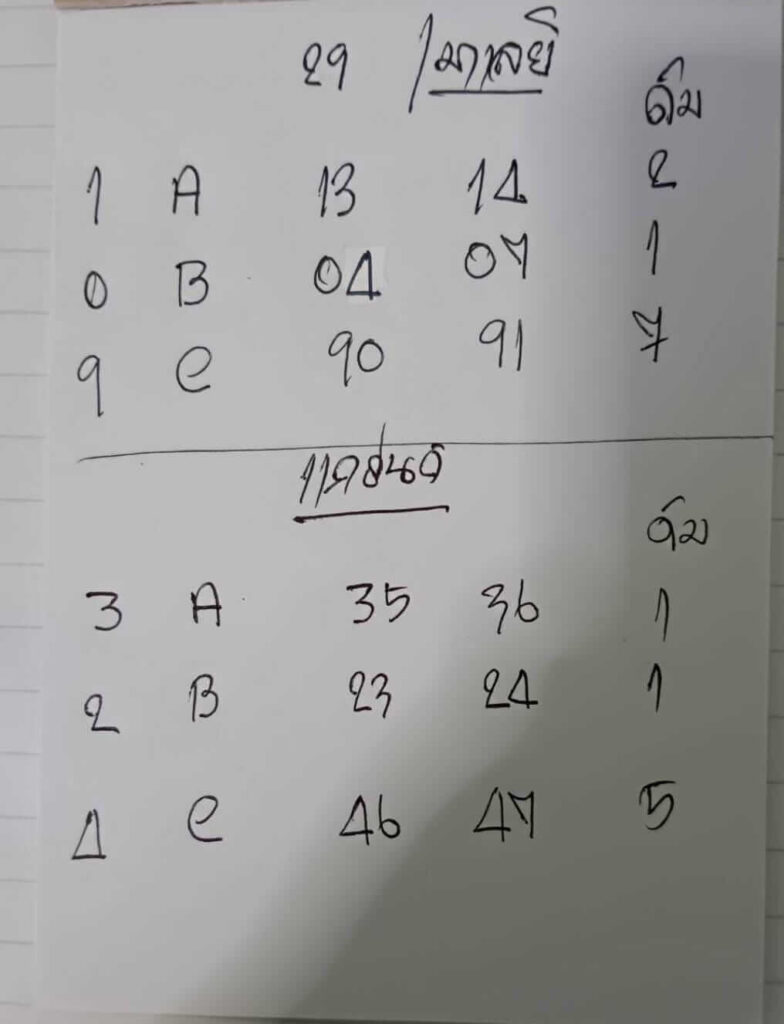 29 / มาเลย์
ดับ
1 A 13 14 2
0 B 04 07 1
9 C 90 91 7
ดับ
3 A 35 36 1
2 B 23 24 1
4 C 46 47 5